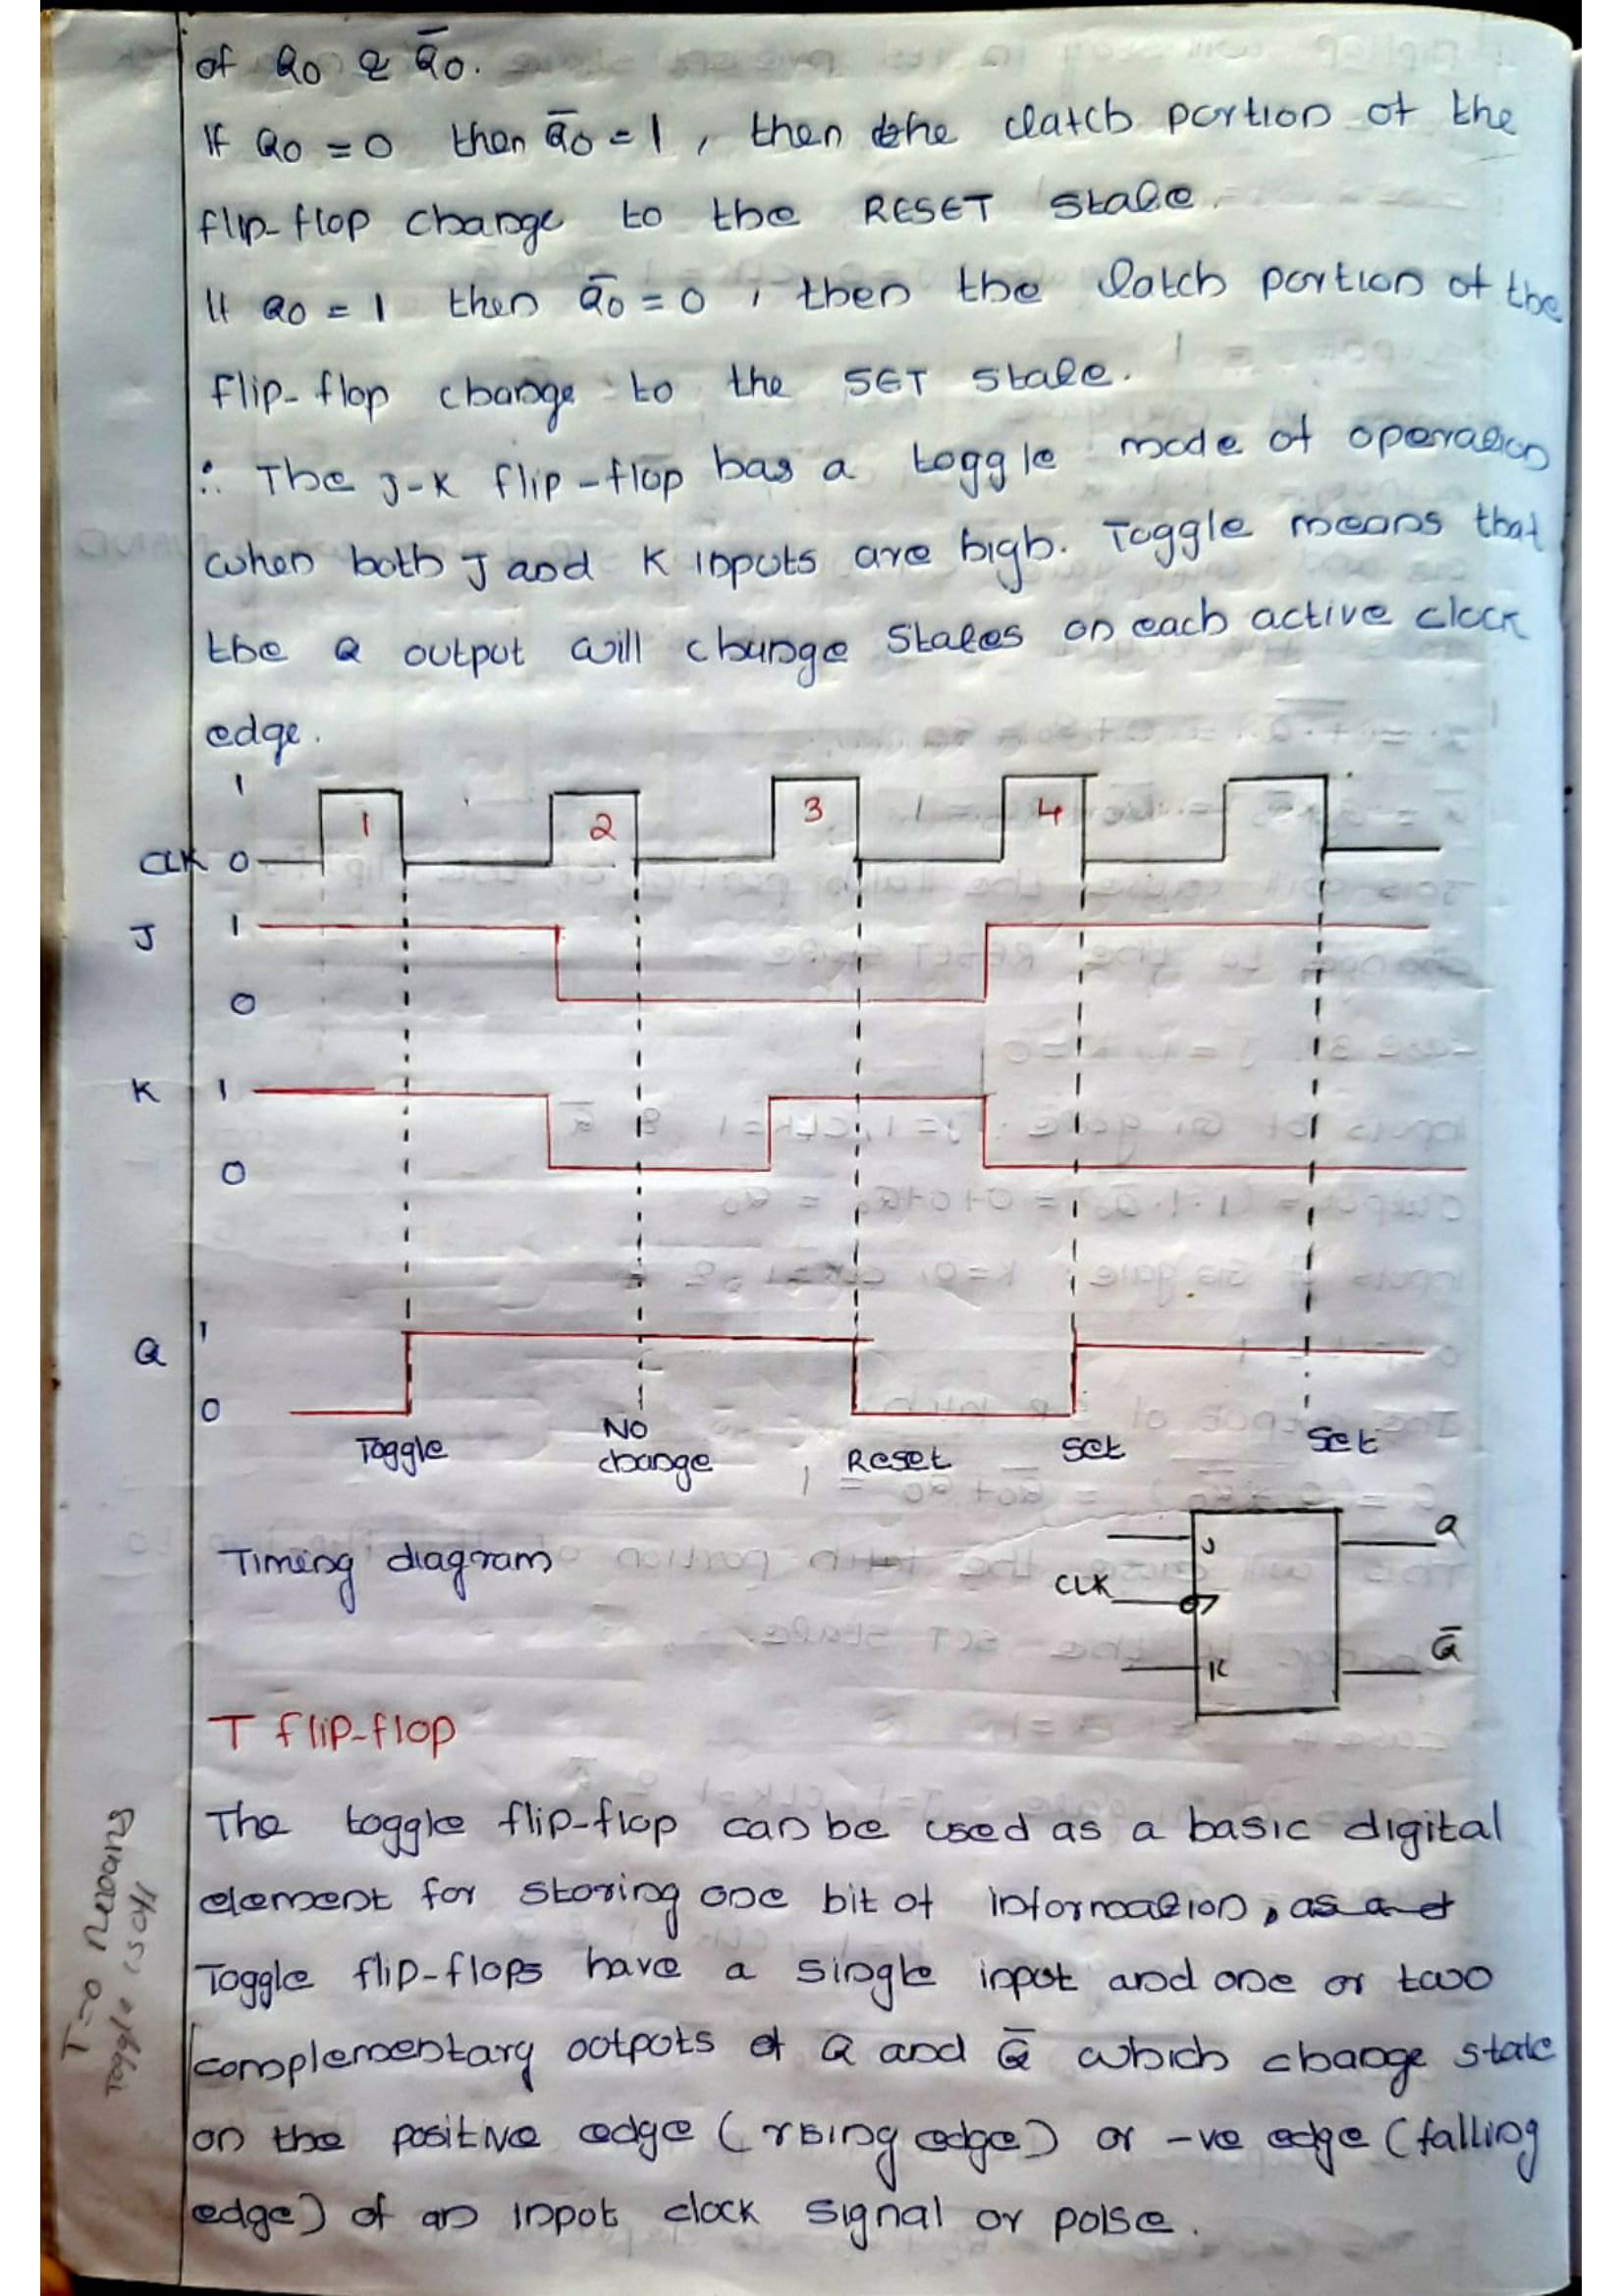 of Q0 & Q̄0.
If Q0 = 0 then Q̄0 = 1 , then the clatch portion of the
flip-flop change to the RESET state.
If Q0 = 1 then Q̄0 = 0 , then the latch portion of the
flip-flop change to the SET state.
∴ The J-K flip-flop has a toggle mode of operation
when both J and K inputs are high. Toggle means that
the Q output will change states on each active clock
edge.
1
1 2 3 4
CLK 0
J 1
0
K 1
0
Q 1
0
Toggle No change Reset Set Set
Timing diagram
J Q
CLK
K Q̄
T flip-flop
The toggle flip-flop can be used as a basic digital
element for storing one bit of information, as a
Toggle flip-flops have a single input and one or two
complementary outputs of Q and Q̄ which change state
on the positive edge (rising edge) or -ve edge (falling
edge) of an input clock signal or pulse.
T=0 means
Toggle is off